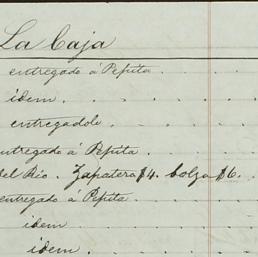 La Caja
entregado á Pepita
idem
entregadole
entregado á Pepita
del Rio. Zapatero $4. bolza $6.
entregado á Pepita
idem
idem